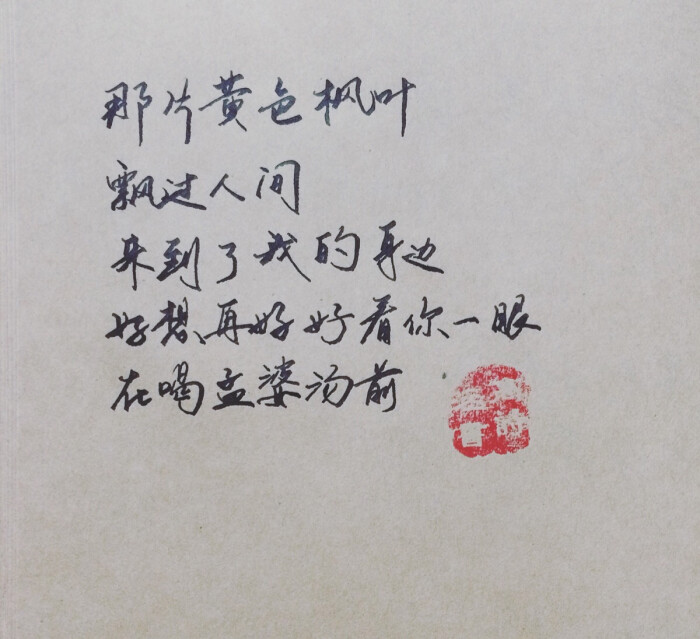 那片黄色枫叶
飘过人间
来到了我的身边
好想再好好看你一眼
在喝孟婆汤前